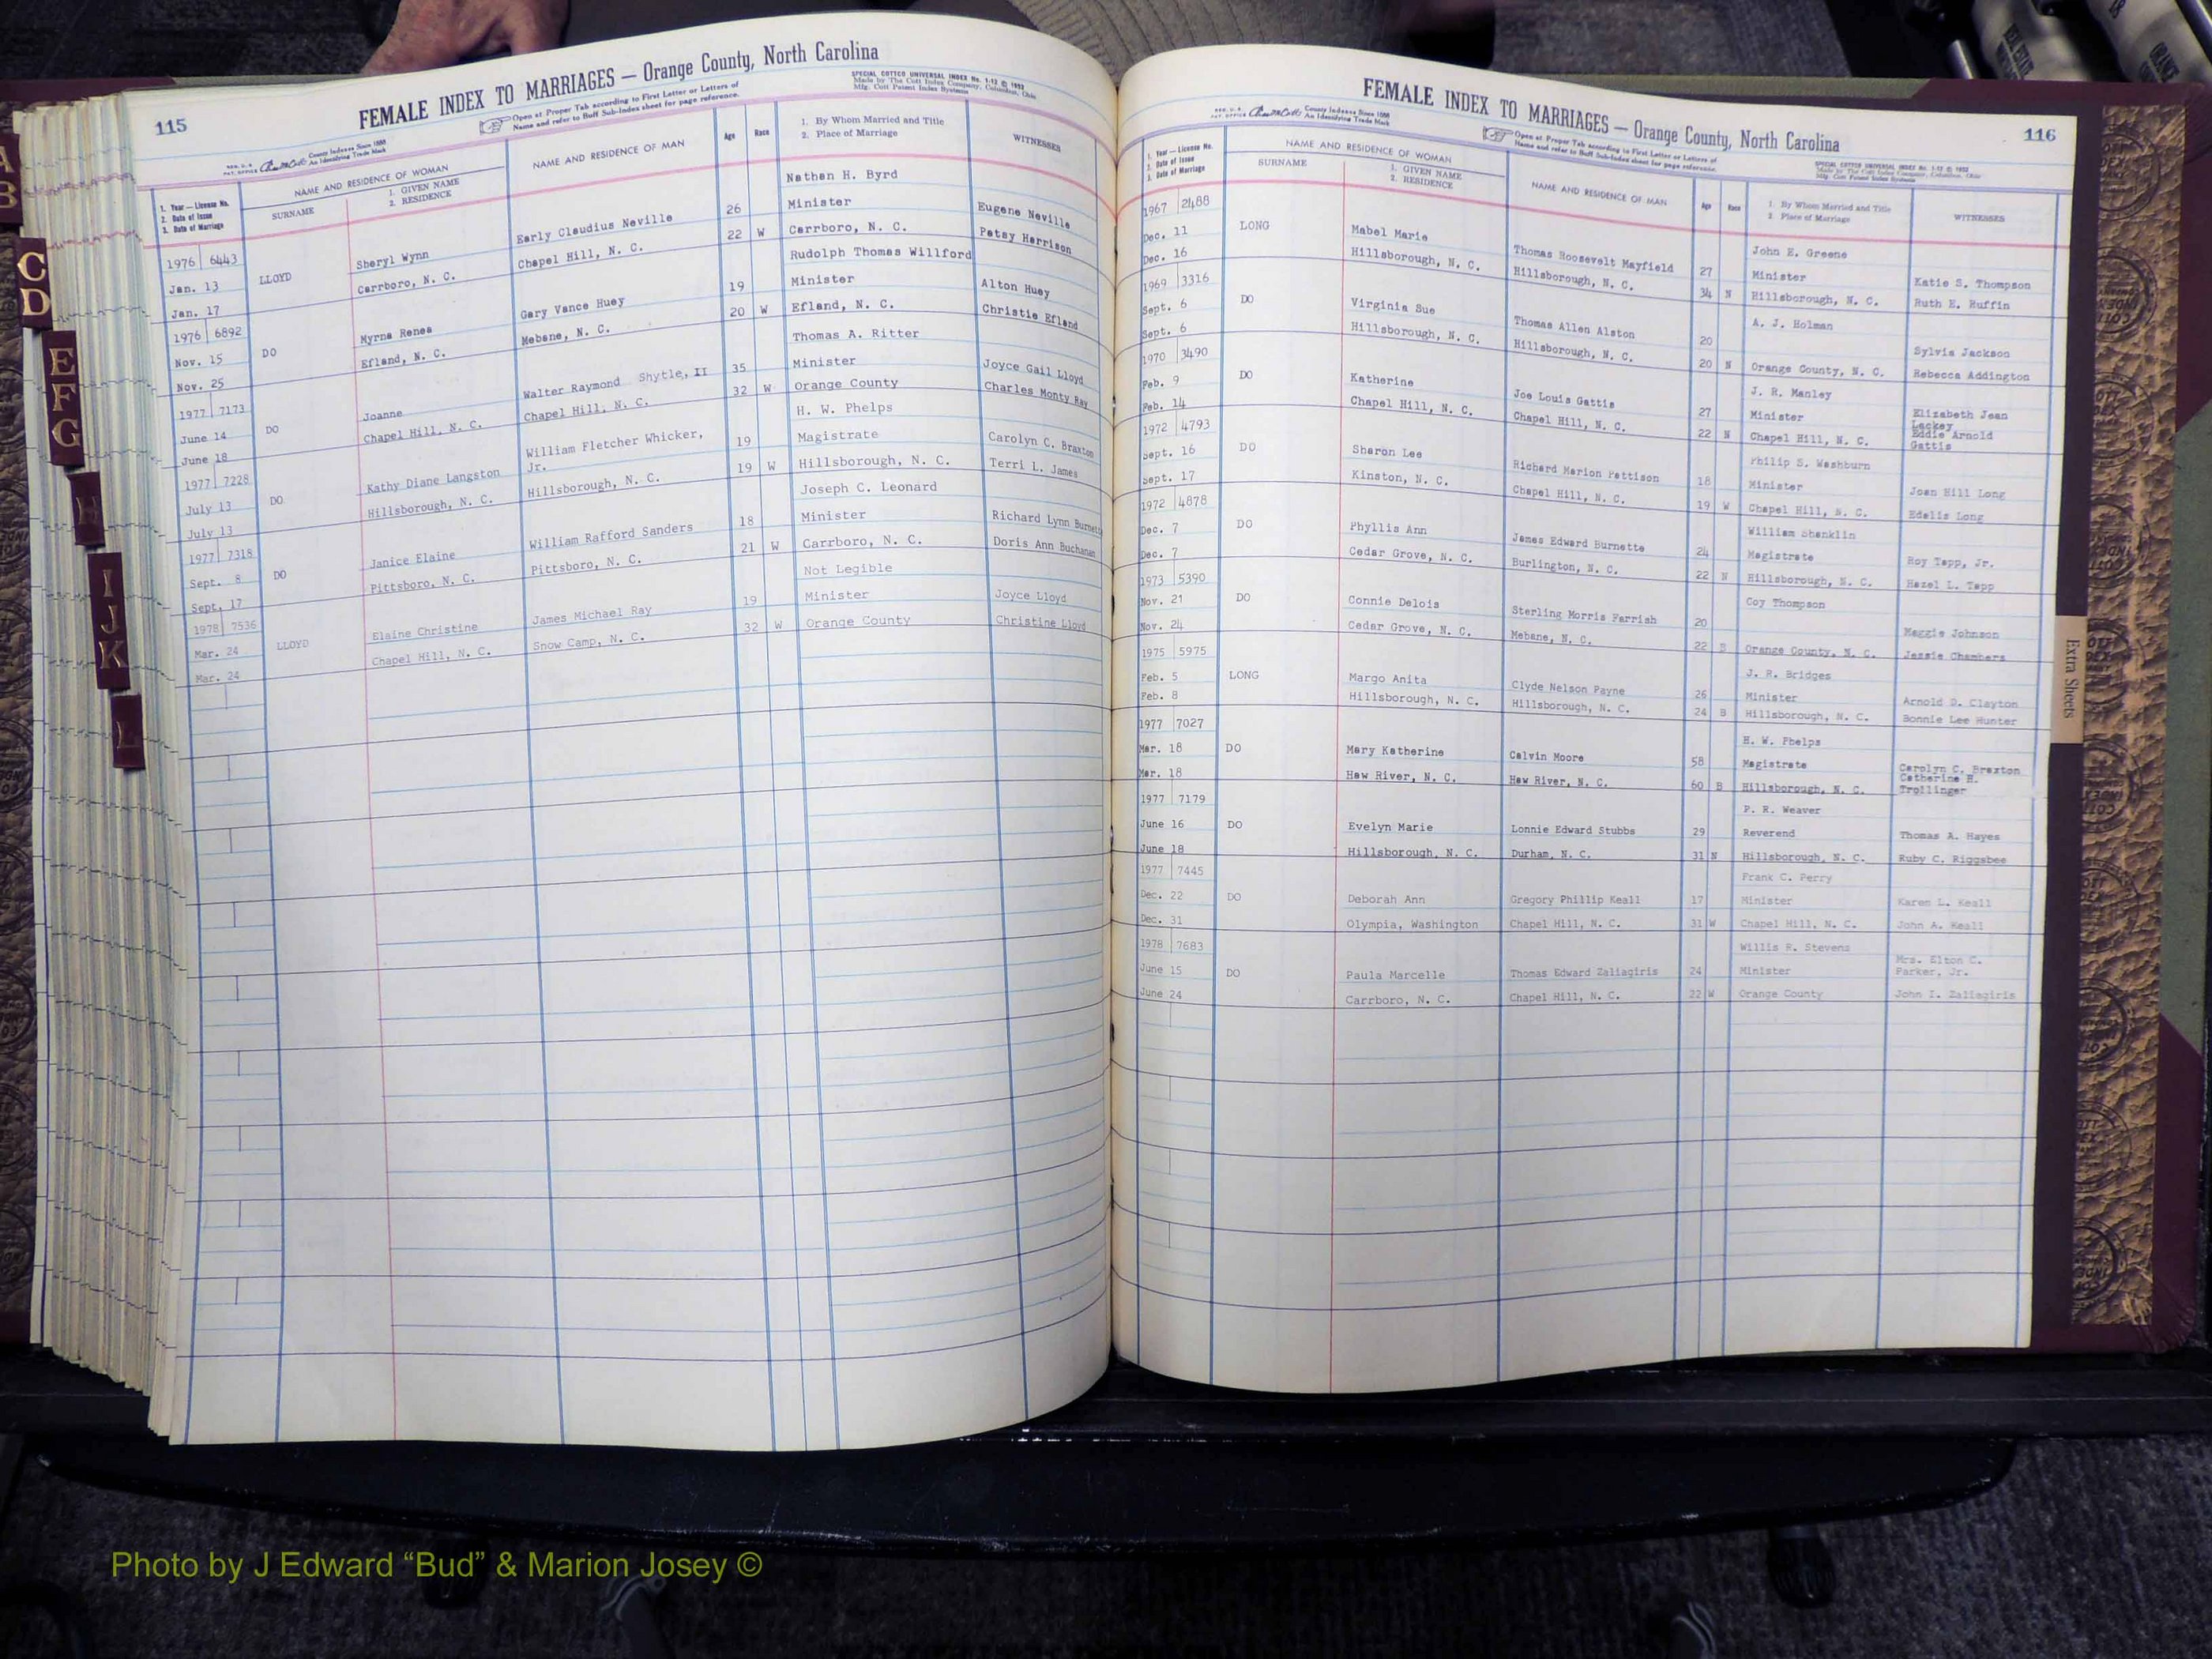 FEMALE INDEX TO MARRIAGES — Orange County, North Carolina
115
Open at Proper Tab according to First Letter or Letters of
Name and refer to Buff Sub-Index sheet for page reference.
SPECIAL COTTCO UNIVERSAL INDEX No. 1-12 © 1952
Made by The Cott Index Company, Columbus, Ohio
Mfg. Cott Patent Index Systems
County Indexes Since 1888
An Identifying Trade Mark
1. Year — License No.
2. Date of Issue
3. Date of Marriage
NAME AND RESIDENCE OF WOMAN
SURNAME
1. GIVEN NAME
2. RESIDENCE
NAME AND RESIDENCE OF MAN
Age
Race
1. By Whom Married and Title
2. Place of Marriage
WITNESSES
Nathen H. Byrd
1976 6443 Early Claudius Neville 26 Minister Eugene Neville
Jan. 13 LLOYD Sheryl Wynn
Jan. 17 Carrboro, N. C. Chapel Hill, N. C. 22 W Carrboro, N. C. Patsy Harrison
Rudolph Thomas Willford
1976 6892 Gary Vance Huey 19 Minister Alton Huey
Nov. 15 DO Myrna Renea
Nov. 25 Efland, N. C. Mebane, N. C. 20 W Efland, N. C. Christie Efland
Thomas A. Ritter
1977 7173 Walter Raymond Shytle, II 35 Minister Joyce Gail Lloyd
June 14 DO Joanne
June 18 Chapel Hill, N. C. Chapel Hill, N. C. 32 W Orange County Charles Monty Ray
H. W. Phelps
1977 7228 William Fletcher Whicker, Jr. 19 Magistrate Carolyn C. Braxton
July 13 DO Kathy Diane Langston
July 13 Hillsborough, N. C. Hillsborough, N. C. 19 W Hillsborough, N. C. Terri L. James
Joseph C. Leonard
1977 7318 William Rafford Sanders 18 Minister Richard Lynn Burnette
Sept. 8 DO Janice Elaine
Sept. 17 Pittsboro, N. C. Pittsboro, N. C. 21 W Carrboro, N. C. Doris Ann Buchanan
Not Legible
1978 7536 James Michael Ray 19 Minister Joyce Lloyd
Mar. 24 LLOYD Elaine Christine
Mar. 24 Chapel Hill, N. C. Snow Camp, N. C. 32 W Orange County Christine Lloyd
FEMALE INDEX TO MARRIAGES — Orange County, North Carolina
116
County Indexes Since 1888
An Identifying Trade Mark
Open at Proper Tab according to First Letter or Letters of
Name and refer to Buff Sub-Index sheet for page reference.
SPECIAL COTTCO UNIVERSAL INDEX No. 1-12 © 1952
Made by The Cott Index Company, Columbus, Ohio
Mfg. Cott Patent Index Systems
1. Year — License No.
2. Date of Issue
3. Date of Marriage
NAME AND RESIDENCE OF WOMAN
SURNAME
1. GIVEN NAME
2. RESIDENCE
NAME AND RESIDENCE OF MAN
Age
Race
1. By Whom Married and Title
2. Place of Marriage
WITNESSES
1967 2488 John E. Greene
Dec. 11 LONG Mabel Marie Thomas Roosevelt Mayfield 27 Minister Katie S. Thompson
Dec. 16 Hillsborough, N. C. Hillsborough, N. C. 34 N Hillsborough, N. C. Ruth E. Ruffin
1969 3316 A. J. Holman
Sept. 6 DO Virginia Sue Thomas Allen Alston 20 Sylvia Jackson
Sept. 6 Hillsborough, N. C. Hillsborough, N. C. 20 N Orange County, N. C. Rebecca Addington
1970 3490 J. R. Manley
Feb. 9 DO Katherine Joe Louis Gattis 27 Minister Elizabeth Jean Lackey
Feb. 14 Chapel Hill, N. C. Chapel Hill, N. C. 22 N Chapel Hill, N. C. Eddie Arnold Gattis
1972 4793 Philip S. Washburn
Sept. 16 DO Sharon Lee Richard Marion Pettison 18 Minister Joan Hill Long
Sept. 17 Kinston, N. C. Chapel Hill, N. C. 19 W Chapel Hill, N. C. Edelis Long
1972 4878 William Shanklin
Dec. 7 DO Phyllis Ann James Edward Burnette 24 Magistrate Roy Tapp, Jr.
Dec. 7 Cedar Grove, N. C. Burlington, N. C. 22 N Hillsborough, N. C. Hazel L. Tapp
1973 5390 Coy Thompson
Nov. 21 DO Connie Delois Sterling Morris Farrish 20 Maggie Johnson
Nov. 24 Cedar Grove, N. C. Mebane, N. C. 22 B Orange County, N. C. Jessie Chambers
1975 5975 J. R. Bridges
Feb. 5 LONG Margo Anita Clyde Nelson Payne 26 Minister Arnold D. Clayton
Feb. 8 Hillsborough, N. C. Hillsborough, N. C. 24 B Hillsborough, N. C. Bonnie Lee Hunter
1977 7027 H. W. Phelps
Mar. 18 DO Mary Katherine Calvin Moore 58 Magistrate Carolyn C. Braxton
Mar. 18 Haw River, N. C. Haw River, N. C. 60 B Hillsborough, N. C. Catherine H. Trollinger
1977 7179 P. R. Weaver
June 16 DO Evelyn Marie Lonnie Edward Stubbs 29 Reverend Thomas A. Hayes
June 18 Hillsborough, N. C. Durham, N. C. 31 N Hillsborough, N. C. Ruby C. Riggsbee
1977 7445 Frank C. Perry
Dec. 22 DO Deborah Ann Gregory Phillip Keall 17 Minister Karen L. Keall
Dec. 31 Olympia, Washington Chapel Hill, N. C. 31 W Chapel Hill, N. C. John A. Keall
1978 7683 Willis R. Stevens
June 15 DO Paula Marcelle Thomas Edward Zaliagiris 24 Minister Mrs. Elton C. Parker, Jr.
June 24 Carrboro, N. C. Chapel Hill, N. C. 22 W Orange County John I. Zaliagiris
Extra Sheets
A
B
C
D
E
F
G
H
I
J
K
L
Photo by J Edward “Bud” & Marion Josey ©